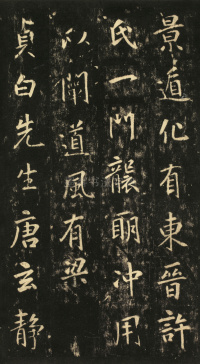 景遁化有東晉許
氏一門襲眀沖用
以闡道風有梁
貞白先生唐玄靜